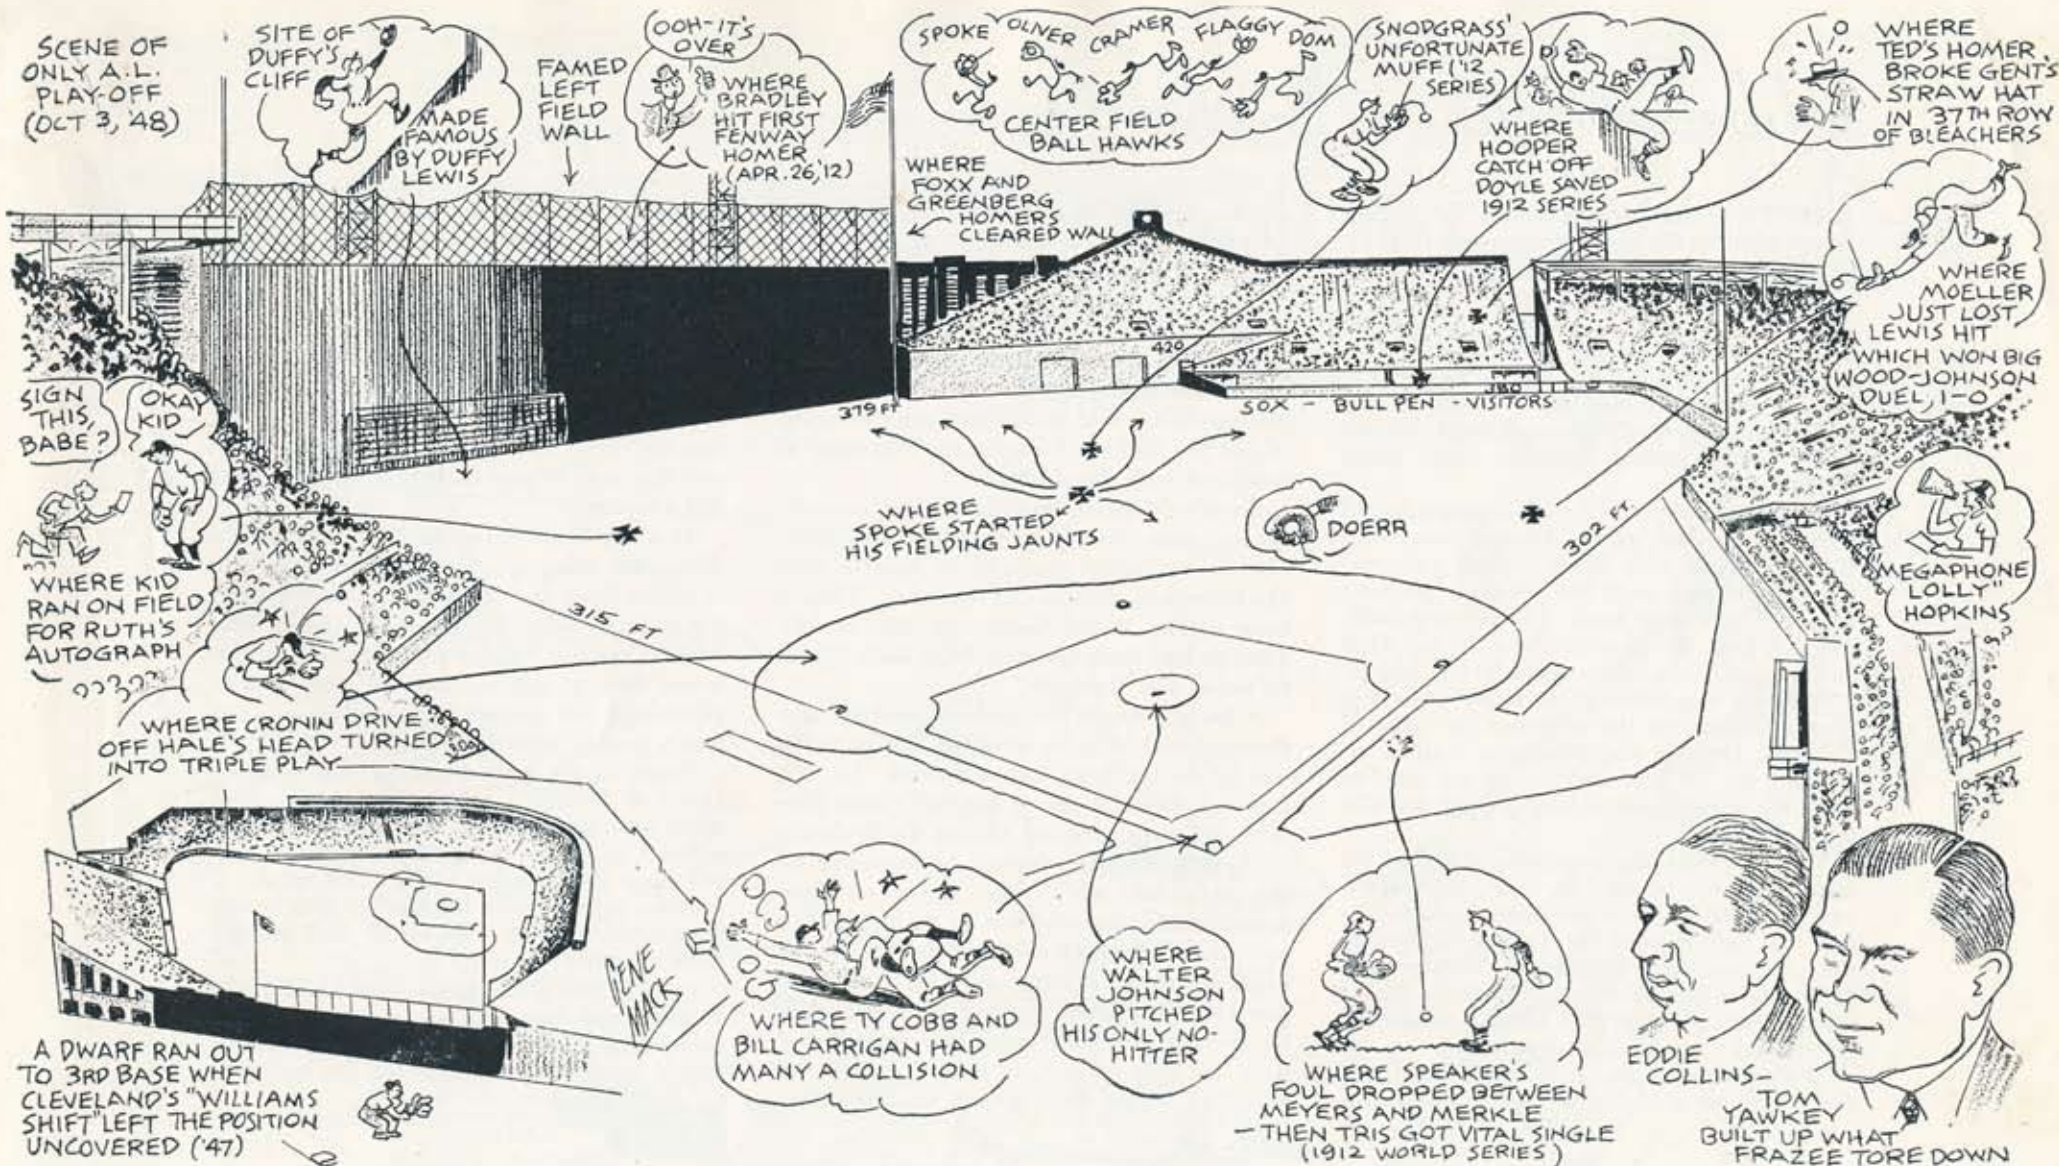 SCENE OF
ONLY A.L.
PLAY-OFF
(OCT 3, '48)
SITE OF
DUFFY'S
CLIFF
MADE
FAMOUS
BY DUFFY
LEWIS
FAMED
LEFT
FIELD
WALL
OOH-IT'S
OVER
WHERE
BRADLEY
HIT FIRST
FENWAY
HOMER
(APR. 26,'12)
SPOKE OLIVER CRAMER FLAGGY DOM
CENTER FIELD
BALL HAWKS
WHERE
FOXX AND
GREENBERG
HOMERS
CLEARED WALL
SNODGRASS'
UNFORTUNATE
MUFF ('12
SERIES)
WHERE
HOOPER
CATCH OFF
DOYLE SAVED
1912 SERIES
WHERE
TED'S HOMER
BROKE GENT'S
STRAW HAT
IN 37TH ROW
OF BLEACHERS
WHERE
MOELLER
JUST LOST
LEWIS HIT
WHICH WON BIG
WOOD-JOHNSON
DUEL, 1-0
SIGN
THIS,
BABE?
OKAY
KID
WHERE KID
RAN ON FIELD
FOR RUTH'S
AUTOGRAPH
379 FT
420
380
SOX - BULL PEN - VISITORS
WHERE
SPOKE STARTED
HIS FIELDING JAUNTS
DOERR
302 FT.
315 FT
"MEGAPHONE
LOLLY"
HOPKINS
WHERE CRONIN DRIVE
OFF HALE'S HEAD TURNED
INTO TRIPLE PLAY
GENE
MACK
A DWARF RAN OUT
TO 3RD BASE WHEN
CLEVELAND'S "WILLIAMS
SHIFT" LEFT THE POSITION
UNCOVERED ('47)
WHERE TY COBB AND
BILL CARRIGAN HAD
MANY A COLLISION
WHERE
WALTER
JOHNSON
PITCHED
HIS ONLY NO-
HITTER
WHERE SPEAKER'S
FOUL DROPPED BETWEEN
MEYERS AND MERKLE
- THEN TRIS GOT VITAL SINGLE
(1912 WORLD SERIES)
EDDIE
COLLINS-
TOM
YAWKEY
BUILT UP WHAT
FRAZEE TORE DOWN